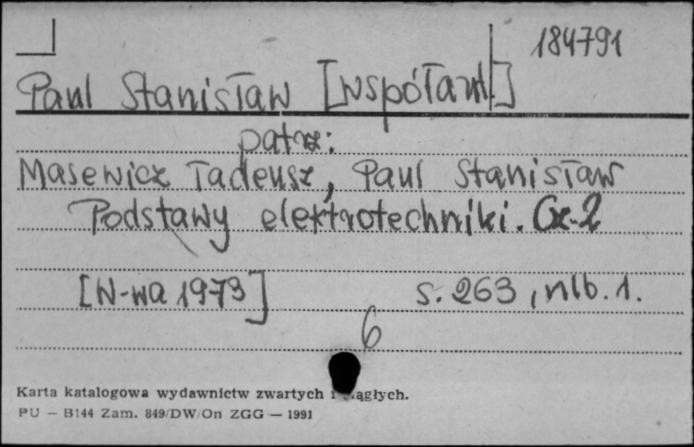 184791
Paul Stanisław [współaut.]
patrz:
Masewicz Tadeusz, Paul Stanisław
Podstawy elektrotechniki. Cz. 2
[W-wa 1973] s. 263, nlb. 1.
6
Karta katalogowa wydawnictw zwartych i ciągłych.
PU — B144 Zam. 849/DW/On ZGG — 1991